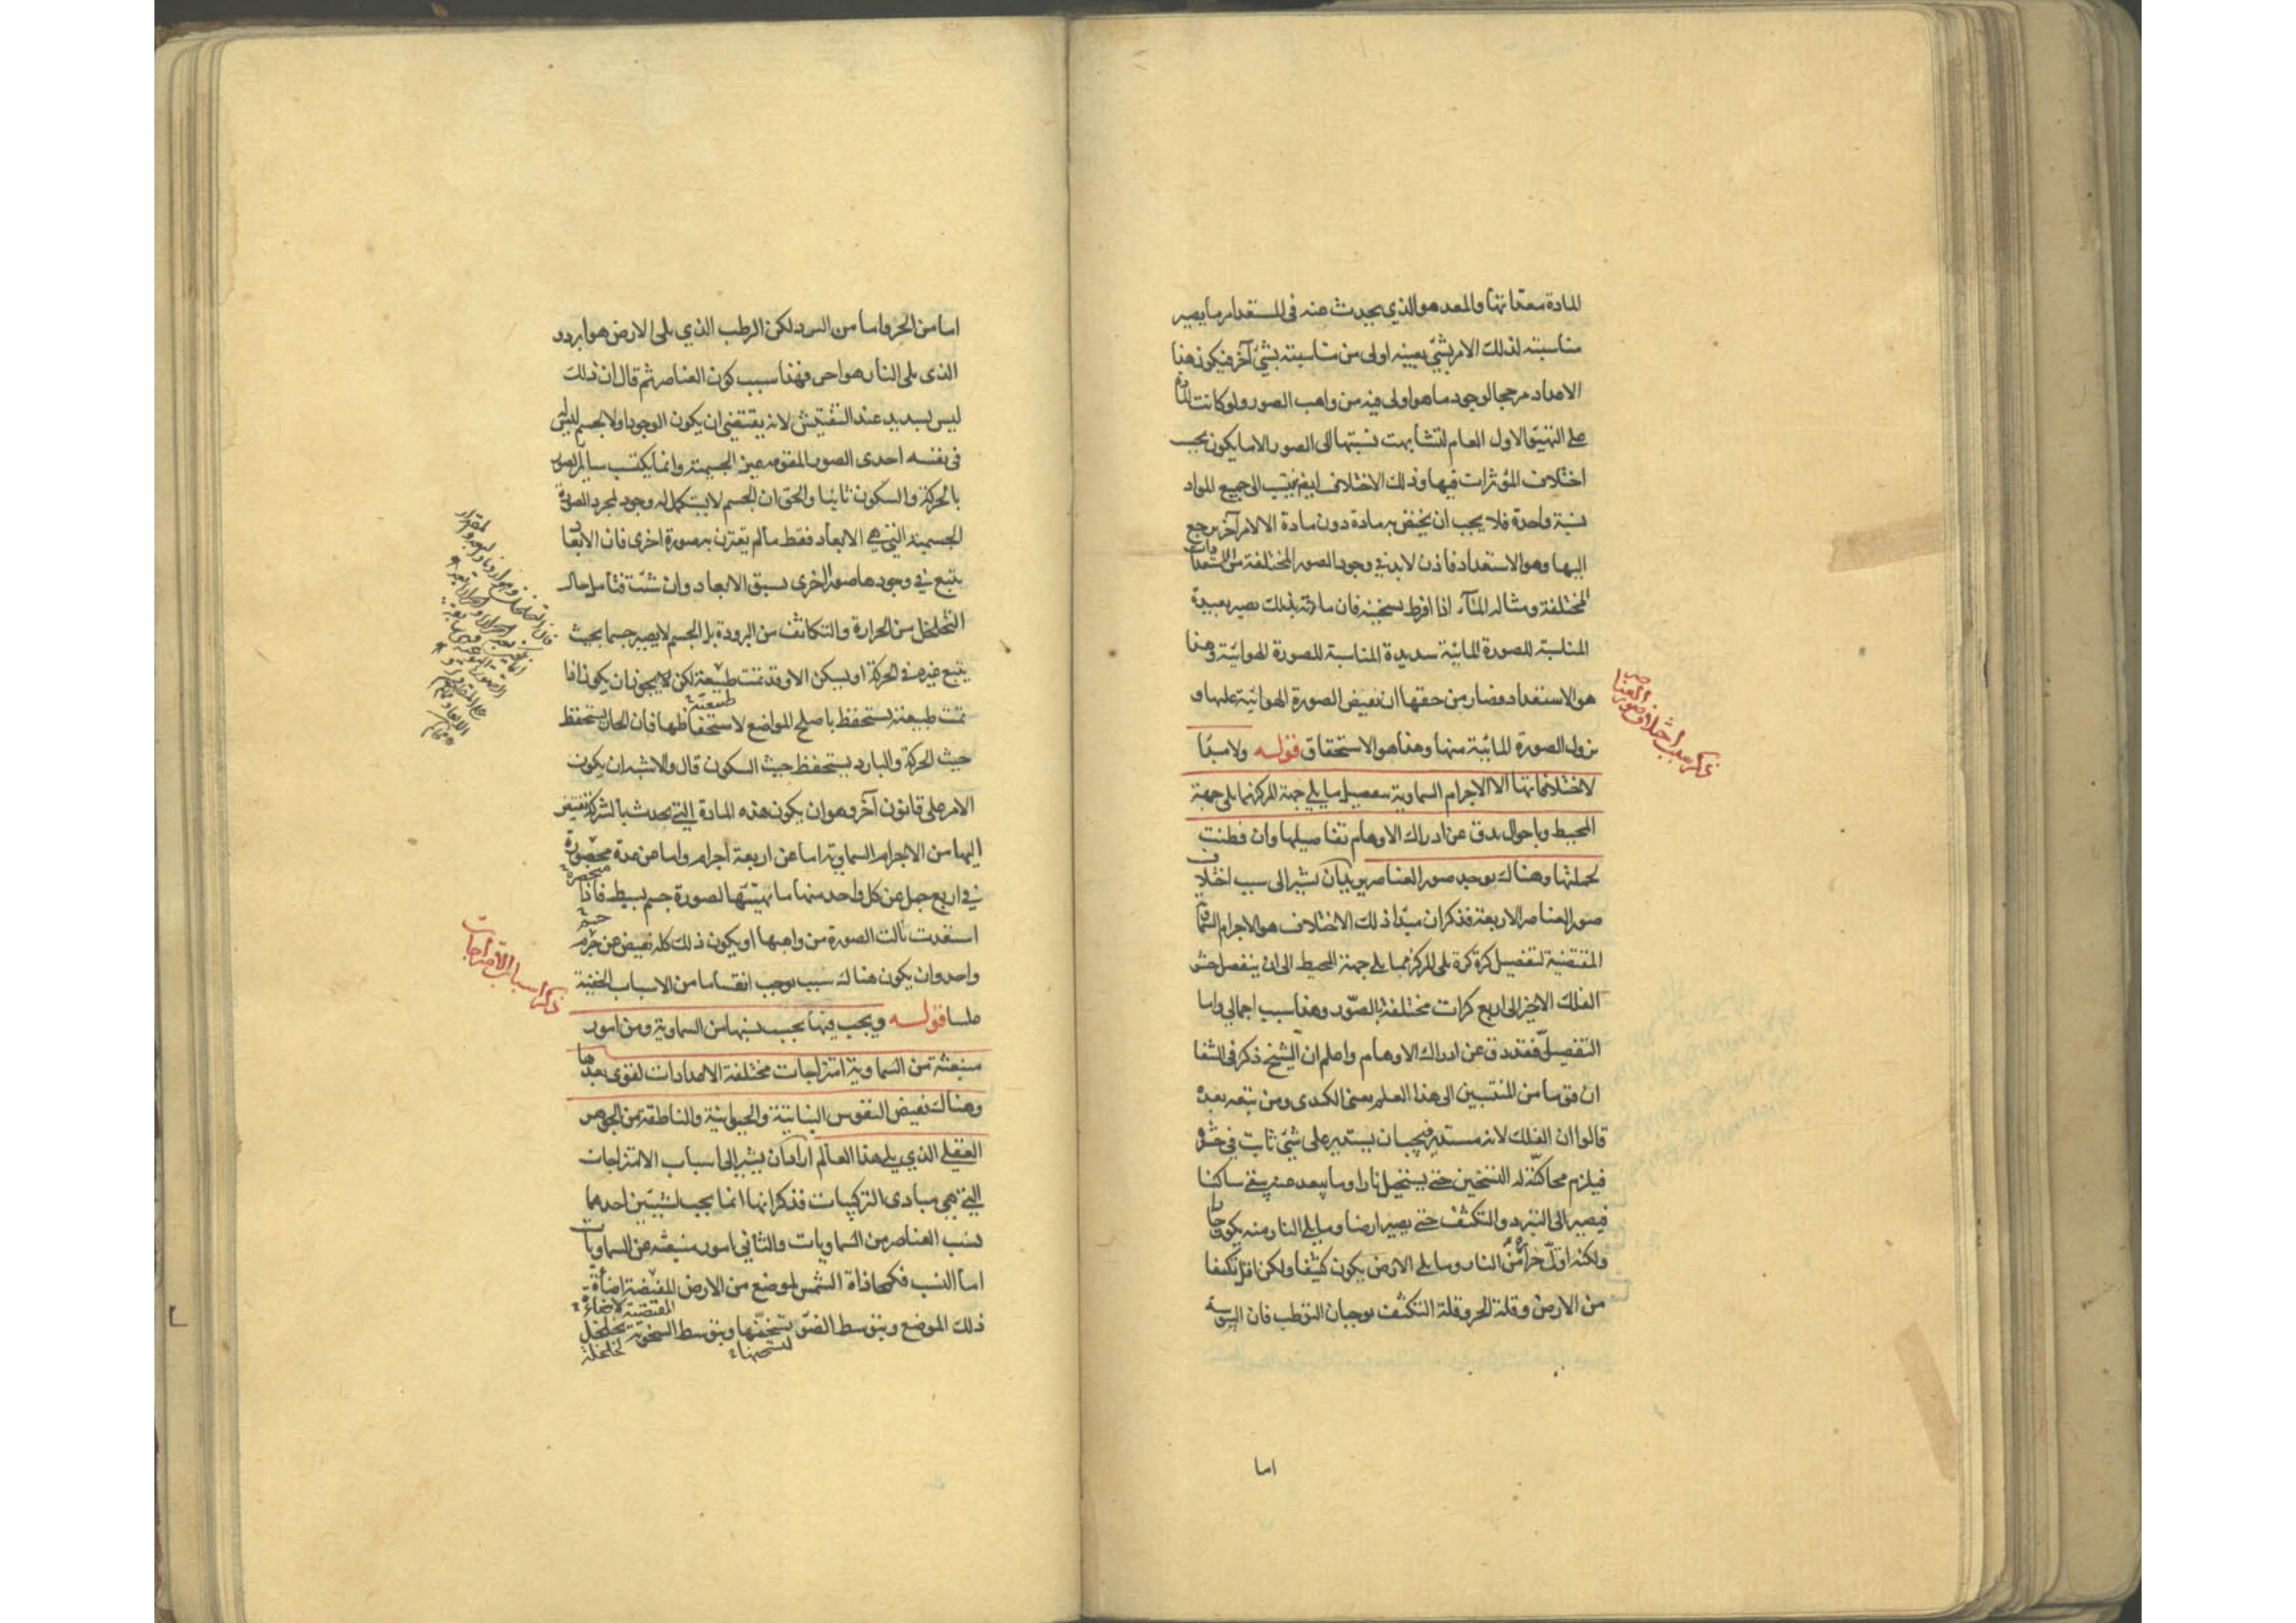 للمادة معدّاتها والمعد هو الذي يحدث عنه في المستعد امر ما يصير
مناسبته لذلك الامر بشئ بعينه اولى من مناسبته بشئ آخر فيكون هذا
الاعداد مرجحا لوجود ما هو اولى فيه من واهب الصور ولو كانت المادة
على التهيّؤ الاول العام لتشابهت نسبتها الى الصور الا ما يكون بحسب
اختلاف المؤثرات فيها وذلك الاختلاف ايضا ينسب الى جميع المواد
نسبة واحدة فلا يجب ان يختص به مادة دون مادة الا لامر آخر يرجع
اليها وهو الاستعداد فاذن لا بد في وجود الصور المختلفة من الاستعدادات
المختلفة ومثاله الماء اذا افرط تسخينه فان مادته بذلك يصير بعيدة
المناسبة للصورة المائية شديدة المناسبة للصورة الهوائية وهذا
هو الاستعداد فصار من حقها ان تفيض الصورة الهوائية عليها و
نزول الصورة المائية منها وهذا هو الاستحقاق قوله ولا مبدّأ
لاختلافاتها الا الاجرام السماوية بتفصيل ما يلي جهة المركز مما يلي جهة
المحيط وباحوال يدق عن ادراك الاوهام تفاصيلها وان فطنت
لجملتها وهناك يوجد صور العناصر يريد ان يشير الى سبب اختلاف
صور العناصر الاربعة فذكر ان مبدأ ذلك الاختلاف هو الاجرام السماوية
المقتضية لتفصيل كرة كرة يلي المركز مما يلي جهة المحيط الى ان ينفصل حشو
الفلك الاخير الى اربع كرات مختلفة بالصور وهذا سبب اجمالي واما
التفصيلي فقد دق عن ادراك الاوهام واعلم ان الشيخ ذكر في الشفا
ان قوما من المنتسبين الى هذا العلم يعني الكندي ومن تبعه بعده
قالوا ان الفلك لانه مستدير فيجب ان يستدير على شئ ثابت في حشوه
فيلزم محاكته له التسخين حتى يستحيل نارا وما يبعد عنه يبقى ساكنا
فيصير الى التبرد والتكثف حتى يصير ارضا وما يلي النار منه يكون حارا
ولكنه اقل حرا من النار وما يلي الارض يكون كثيفا ولكن اقل تكثفا
من الارض وقلة الحر وقلة التكثف يوجبان الترطب فان اليبوسة
اما
ذكر سبب اختلاف صور العناصر
اما من الحر واما من البرد لكن الرطب الذي يلي الارض هو ابرد و
الذي يلي النار هو احر فهذا سبب كون العناصر ثم قال ان ذلك
ليس بسديد عند التفتيش لانه يقتضي ان يكون الوجود اولا لجسم ليس
في نفسه احدى الصور المقومة غير الجسمية وانما يكتسب سائر الصور
بالحركة والسكون ثانيا والحق ان الجسم لا يستكمل له وجود لمجرد الصورة
الجسمية التي هي الابعاد فقط ما لم يقترن به صورة اخرى فان الابعاد
يتبع في وجودها صورا اخرى يسبق الابعاد وان شئت فتامل حال
التخلخل من الحرارة والتكاثف من البرودة بل الجسم لا يصير جسما بحيث
يتبع غيره في الحركة او يسكن الا وقد تمت طبيعته لكن لا يجوز ان يكون اذا
طبيعته
تمت طبيعته يستحفظ باصلح المواضع لاستحفاظها فان الحار يستحفظ
حيث الحركة والبارد يستحفظ حيث السكون قال والاشبه ان يكون
الامر على قانون آخر وهو ان يكون هذه المادة التي يحدث بالشركة يفيض
اليها من الاجرام السماوية اما عن اربعة اجرام واما عن عدة محصورة
منحصرة
في اربع جمل عن كل واحد منها ما يهيئها لصورة جسم بسيط فاذا
استعدت نالت الصورة من واهبها او يكون ذلك كله يفيض عن جرم
واحد وان يكون هناك سبب يوجب انقساما من الاسباب الخفية
علينا قوله ويجب فيها بحسب نسبها من السماوية ومن امور
منبعثة من السماوية امتزاجات مختلفة الاعدادات لقوى يعدها
وهناك تفيض النفوس النباتية والحيوانية والناطقة من الجوهر
العقلي الذي يلي هذا العالم اراد ان يشير الى اسباب الامتزاجات
التي هي مبادى التركيبات فذكر انها انما يجب لشيئين احدهما
نسب العناصر من السماويات والثاني امور منبعثة من السماويات
اما النسب فكمحاذاة الشمس لموضع من الارض المقتضية اضأة
المقتضية لاضاءة
ذلك الموضع ويتوسط الضوء تسخنها ويتوسط السخونة تخلخل
لتسخنها
تخلخله
ذكر اسباب الامتزاجات